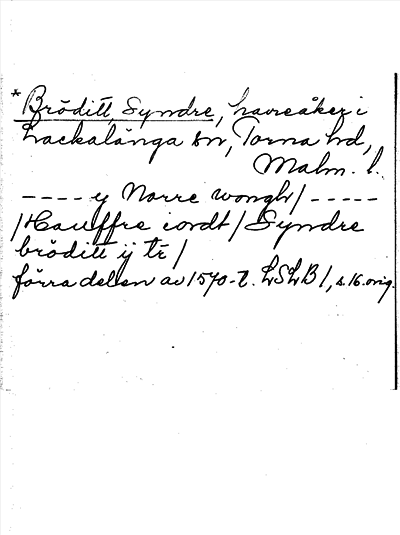 * Bröditt, Syndre, havreåker i
Lackalänga sn, Torna hd,
Malm. l.
---- y Norre wongh/-----
/Hauffre iordt/Syndre
bröditt ij tr/
förra delen av 1570-t. LSLB I, s. 16. orig.